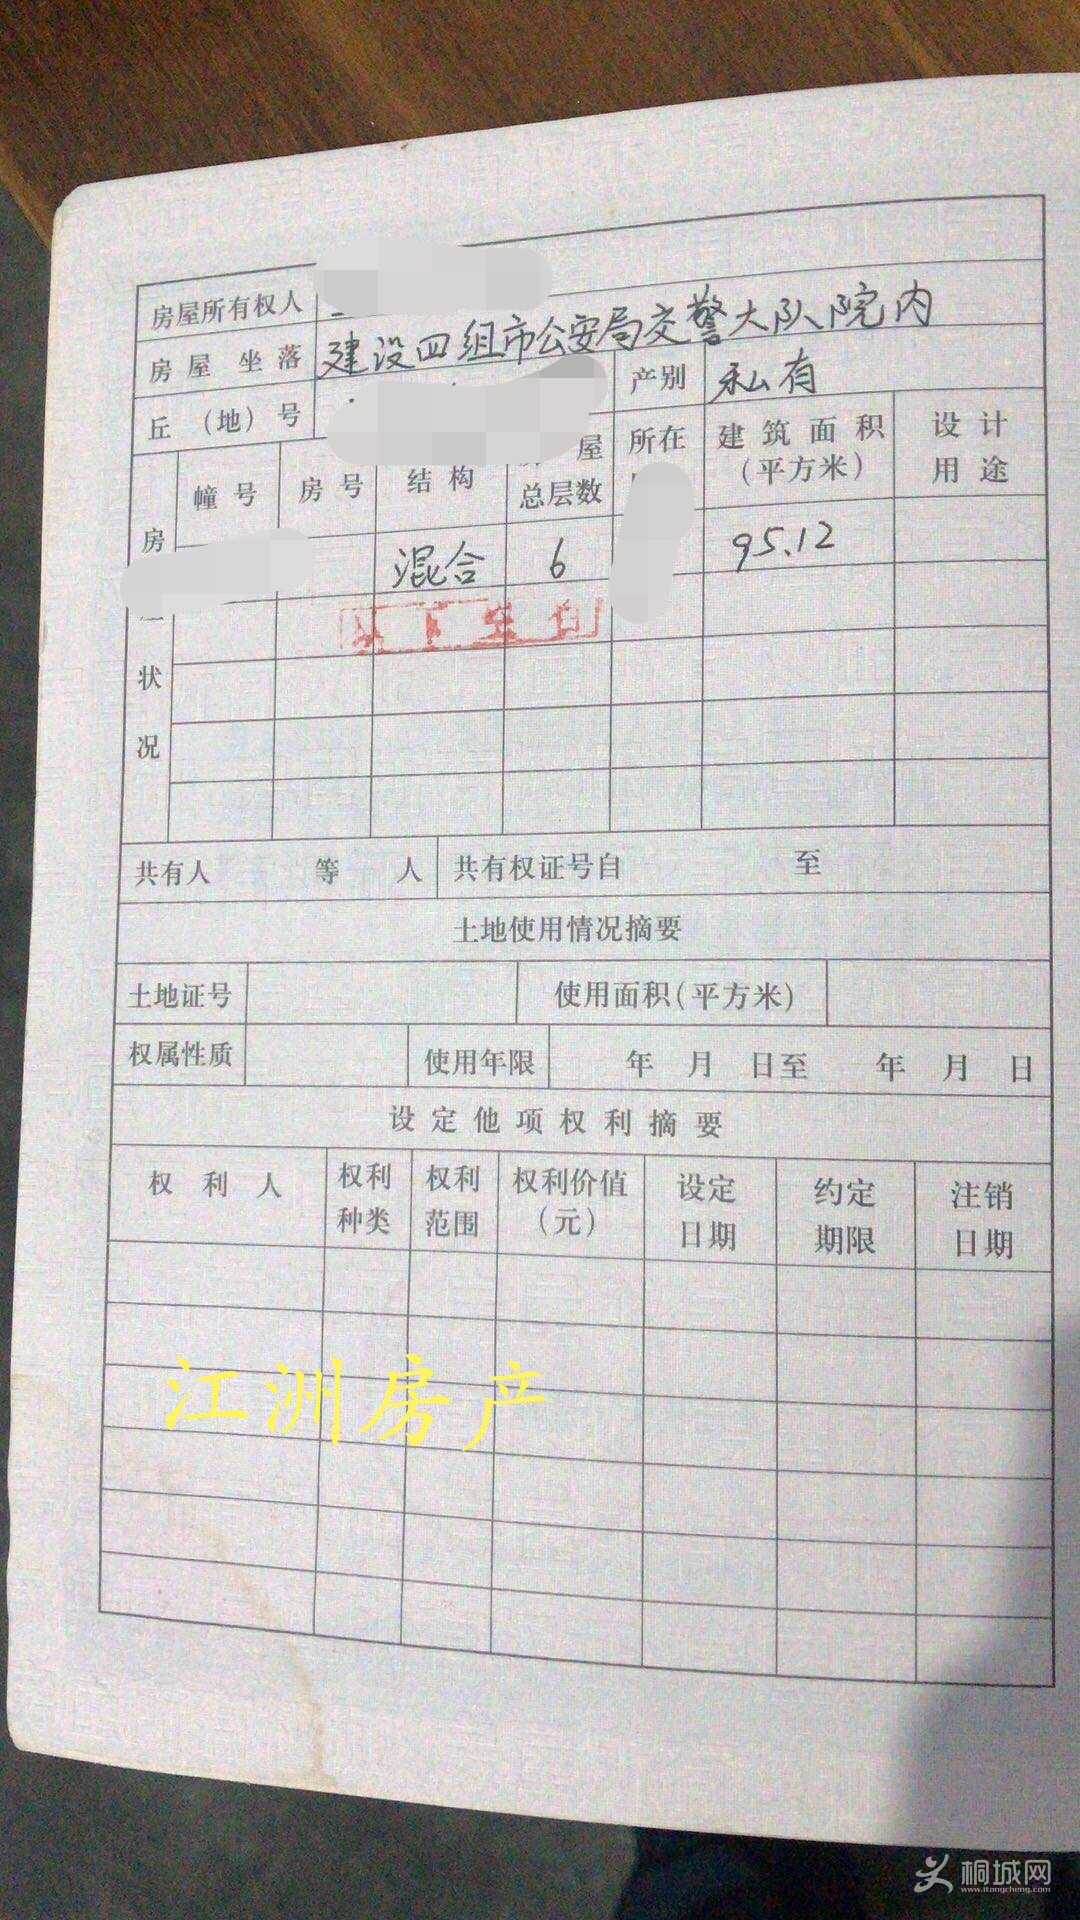 房屋所有权人
房屋坐落 建设四组市公安局交警大队院内
丘（地）号 产别 私有
房 状况
幢号 房号 结构 屋总层数 所在 建筑面积（平方米） 设计用途
混合 6 95.12
以下空白
共有人 等 人 共有权证号自 至
土地使用情况摘要
土地证号 使用面积(平方米)
权属性质 使用年限 年 月 日至 年 月 日
设定他项权利摘要
权利人 权利种类 权利范围 权利价值（元） 设定日期 约定期限 注销日期
江洲房产
桐城网
www.itongcheng.com